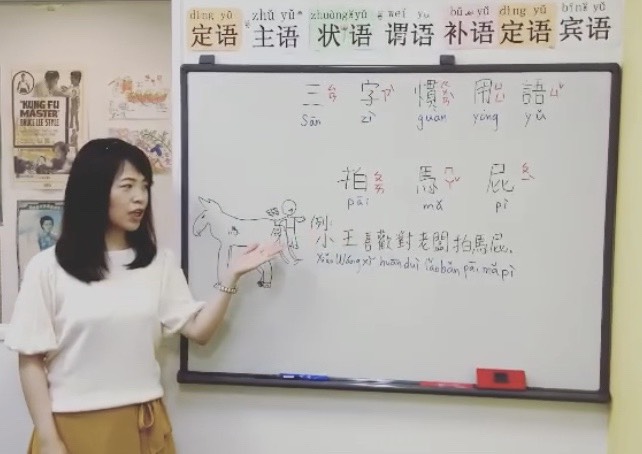 dìng yǔ zhǔ yǔ zhuàng yǔ wèi yǔ bǔ yǔ dìng yǔ bīn yǔ
定语 主语 状语 谓语 补语 定语 宾语
"KUNG FU
MASTER"
BRUCE LEE STYLE
三 字 慣 用 語
Sān zì guàn yòng yǔ
拍 馬 屁
pāi mǎ pì
例:
小王喜歡對老闆拍馬屁.
Xiǎo Wáng xǐ huān duì lǎo bǎn pāi mǎ pì